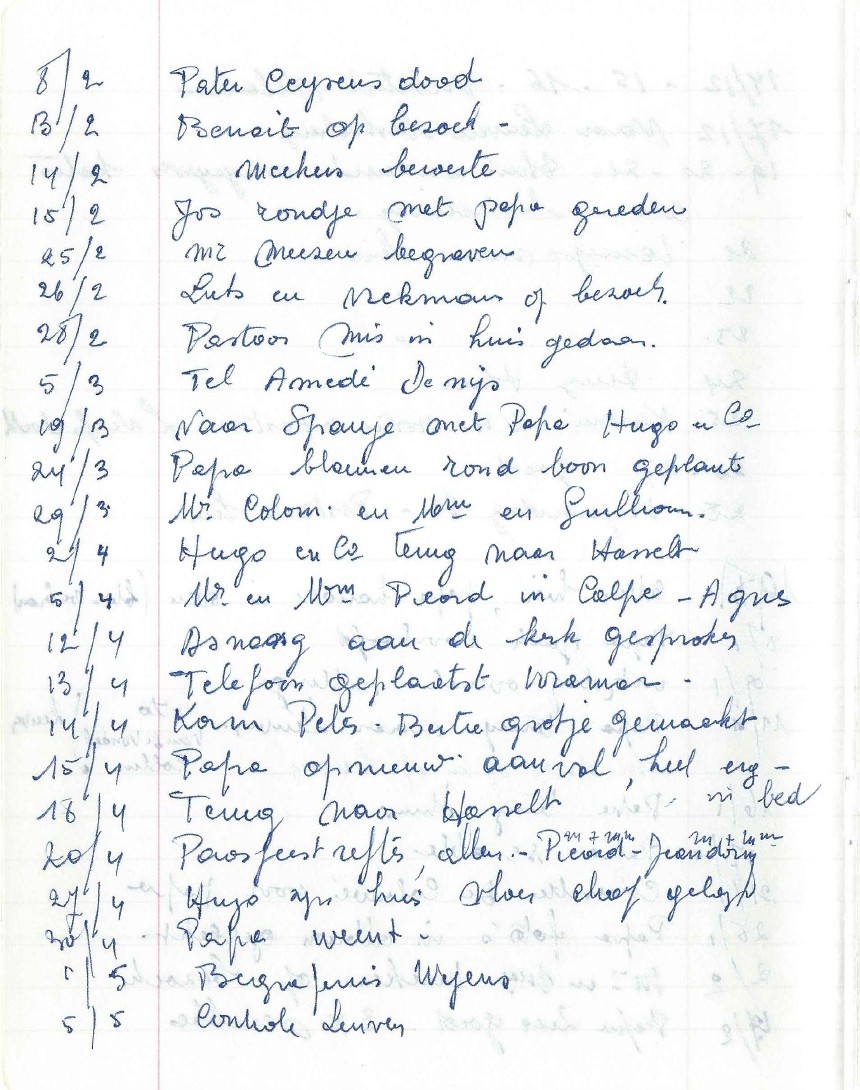 8/2 Pater Ceyssens dood
13/2 Benoit op bezoek -
14/2 beroerte
15/2 Jos rondje met papa gereden
25/2 Mr Meesen begraven
26/2 Luts en Vrekmans op bezoek.
28/2 Pastoor Mis in huis gedaan.
5/3 Tel Amedé Denijs
19/3 Naar Spanje met Papa Hugo en Co
24/3 Papa bloemen rond boom geplant
29/3 Mr. Colom. en Mvm en
2/4 Hugo en Co terug naar Hasselt
5/4 Mr. en Mvm Picard in Calpe - Agnes
12/4 aan de kerk gesproken
13/4 Telefoon geplaatst
14/4 Karin Pels - grotje gemaakt
15/4 Papa opnieuw aanval, heel erg -
in bed
18/4 Terug naar Hasselt
20/4 Paasfeest allen - Picard -
27/4 Hugo zijn huis vloer
30/4 Papa weent -
1/5 Begrafenis Wijens
5/5 Controle Leuven